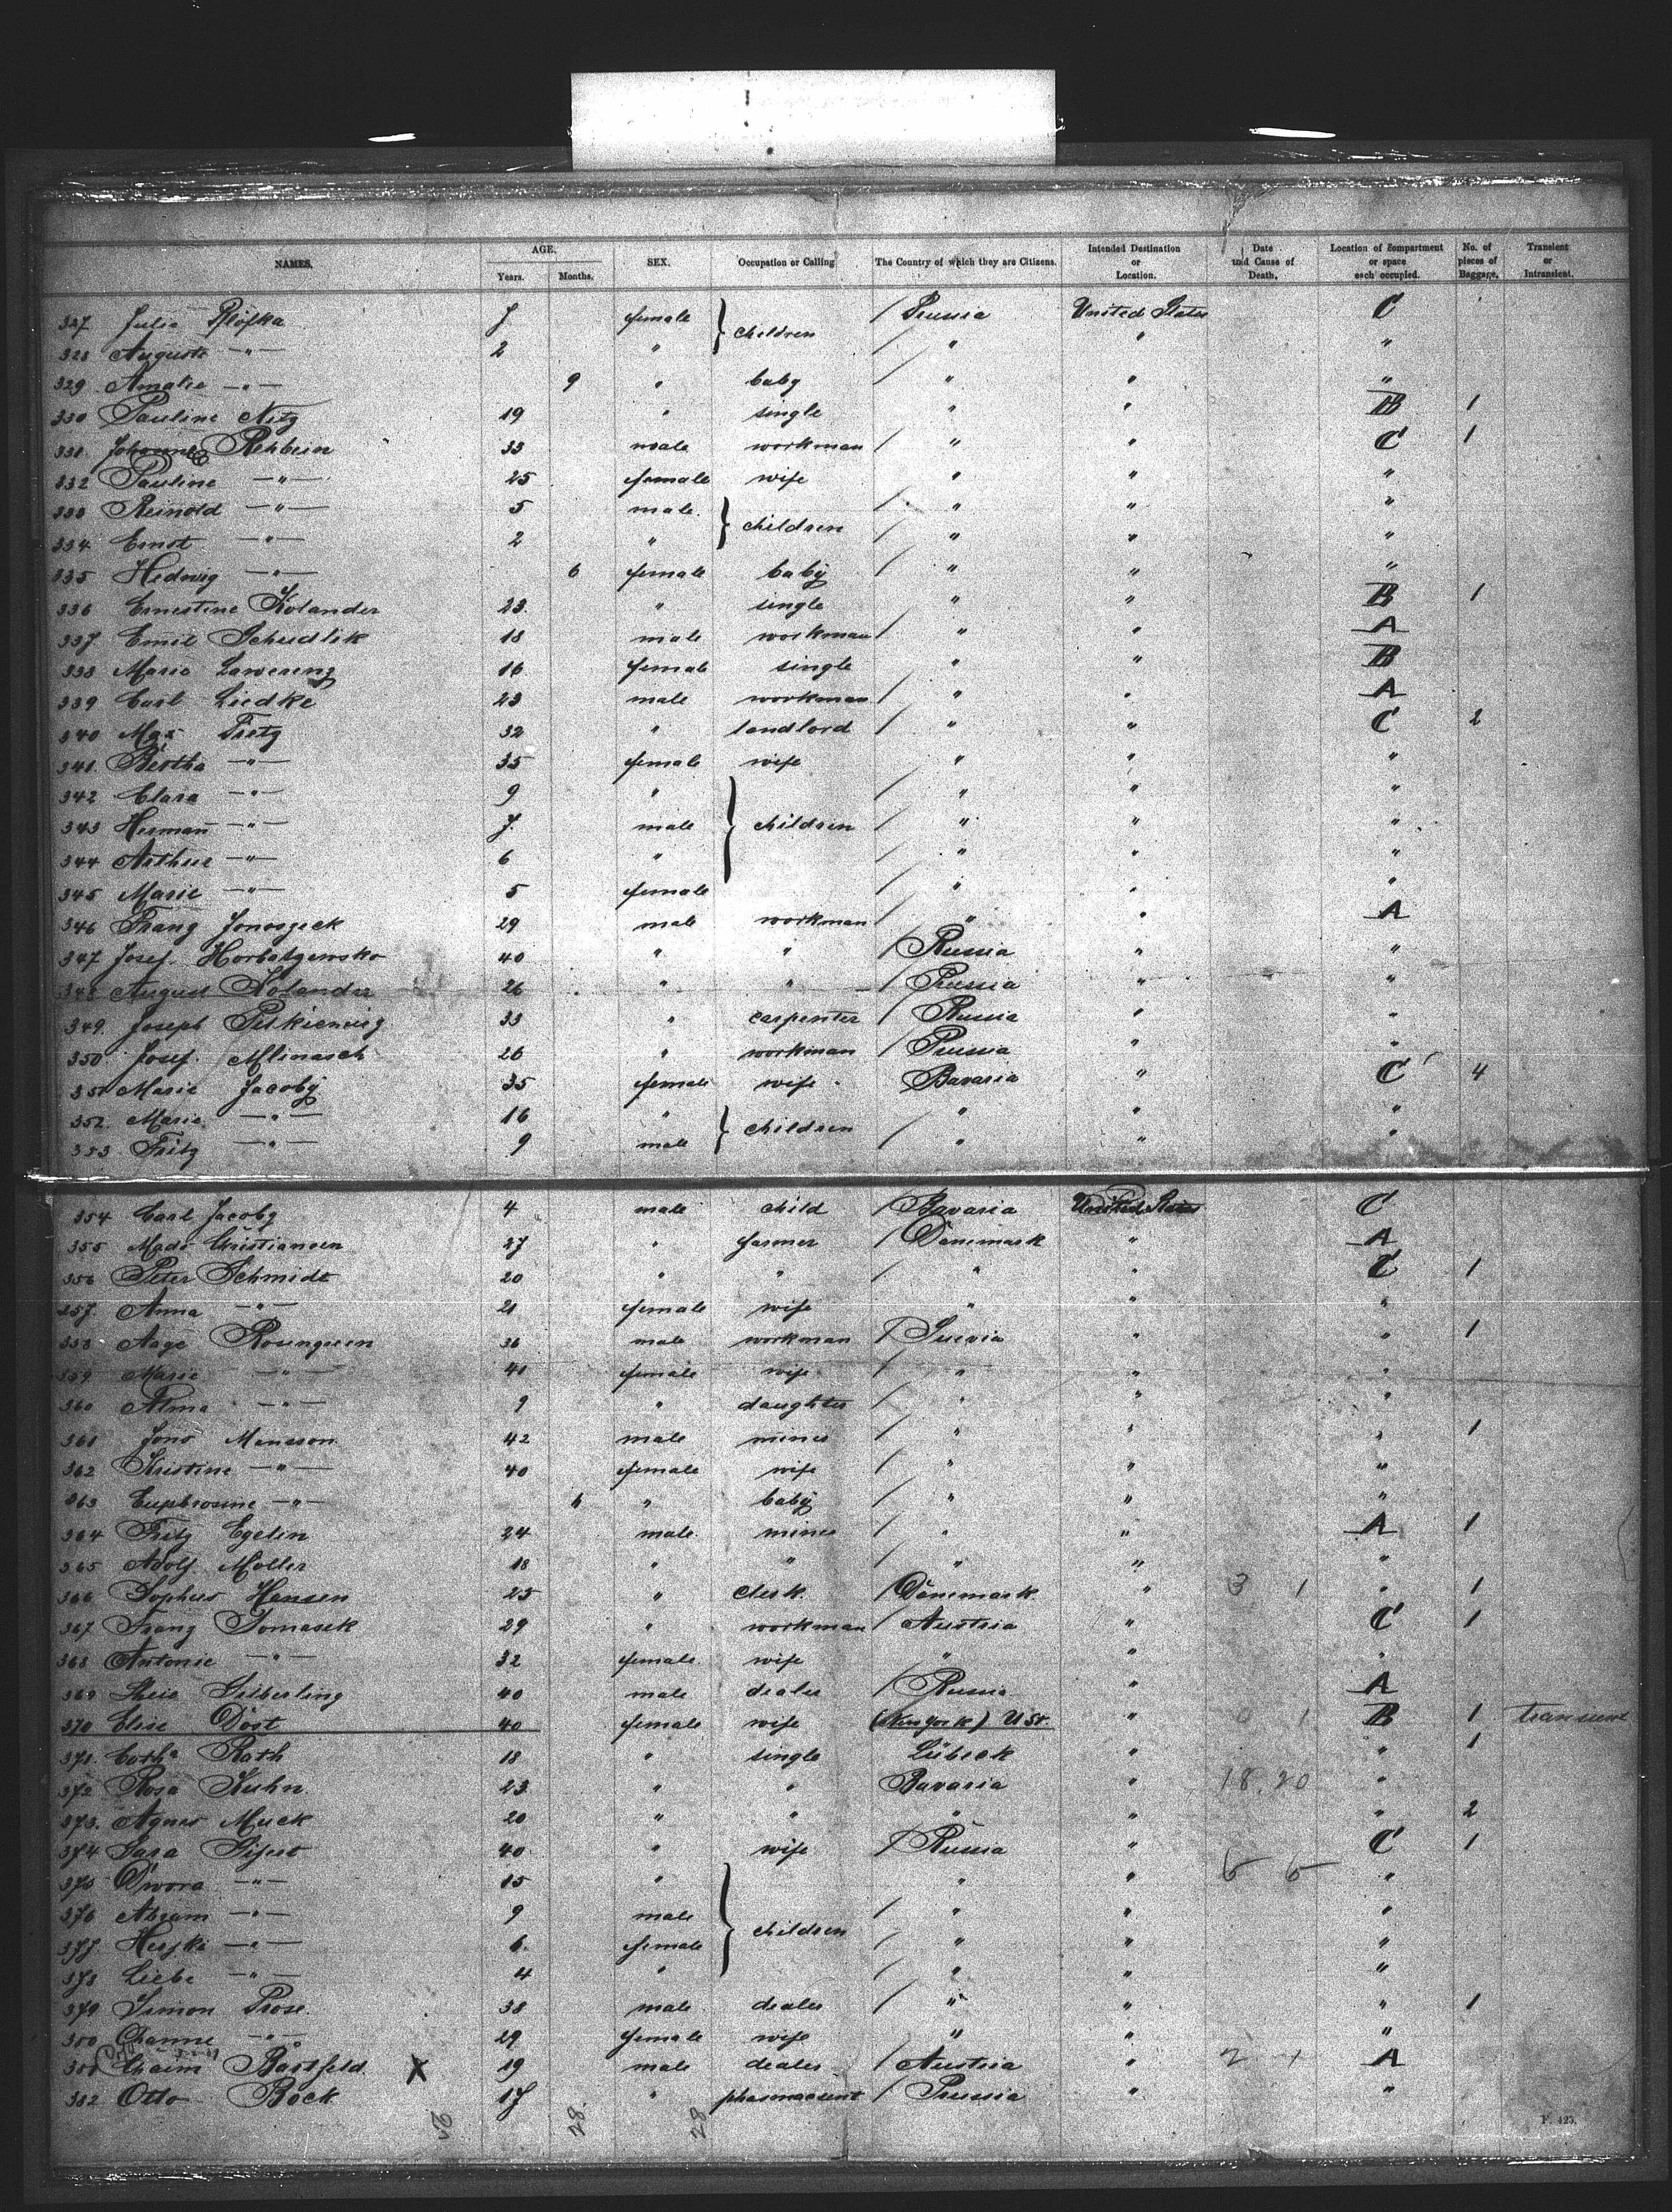 NAMES. AGE. Years. Months. SEX. Occupation or Calling The Country of which they are Citizens. Intended Destination or Location. Date und Cause of Death. Location of compartment or space each occupied. No. of pieces of Baggage. Transient or Intransient.
327 Julie 7 female children / Prussia United States C
328 Auguste -"- 2 " / " " "
329 Amalie -"- 9 " baby / " " "
330 Pauline Nitz 19 " single " " B 1
331 Rehbein 33 male workman / " " C 1
332 Pauline -"- 25 female wife " " "
333 Reinold -"- 5 male children / " " "
334 Ernst -"- 2 " / " " "
335 Hedwig -"- 6 female baby / " " "
336 Ernestine Kolander 23 " single " " B 1
337 Emil Schudlik 18 male workman / " " A
338 Marie Lawerenz 16 female single " " B
339 Carl Liedke 23 male workman / " " A
340 Max Tietz 32 " landlord / " " C 2
341 Bertha -"- 35 female wife " " "
342 Clara -"- 9 " children / " " "
343 Herman -"- 7 male / " " "
344 Arthur -"- 6 " / " " "
345 Marie -"- 5 female / " " "
346 Franz 29 male workman / " " A
347 Josef 40 " " / Russia " "
348 August Kolander 26 " " / Prussia " "
349 Joseph 33 " carpenter / Russia " "
350 Josef Mlinasch 26 " workman / Prussia " "
351 Marie Jacoby 35 female wife Bavaria " C 4
352 Marie -"- 16 " children " " "
353 Fritz -"- 9 male / " " "
354 Carl Jacoby 4 male child / Bavaria United States C
355 Mads Christiansen 27 " farmer / Dänemark " A
356 Peter Schmidt 20 " " / " " C 1
357 Anna -"- 21 female wife " " "
358 Aage Rosengreen 36 male workman / Suevia " " 1
359 Marie -"- 41 female wife / " " "
360 Alma -"- 9 " daughter / " " "
361 Jons Monsson 42 male miner / " " " 1
362 Kristine -"- 40 female wife / " " "
363 Euphrosine -"- 6 " baby / " " "
364 Fritz Egelin 24 male miner / " " A 1
365 Adolf Moller 18 " " / " " "
366 Sophus Hansen 25 " clerk / Dänemark " 3 1 " 1
367 Franz Tomasek 29 " workman / Austria " C 1
368 Antonie -"- 32 female wife " " "
369 Silberling 40 male dealer / Russia " A
370 Elise Döst 40 female wife (New York) U St. " 0 1 B 1 transient
371 Cath. Rath 18 " single Lübeck " " 1
372 Rosa Kuhn 23 " " Bavaria " 18.20 "
373 Agnes Muck 20 " " " " " 2
374 Sara 40 " wife / Russia " C 1
375 Dwora -"- 15 " children " " 6 6 "
376 Abram -"- 9 male / " " "
377 -"- 6 female / " " "
378 Liebe -"- 4 " / " " "
379 Simon Prose 38 male dealer / " " " 1
380 Channe -"- 29 female wife " " "
381 Chaim Bartfeld X 19 male dealer / Austria " 2 1 A
382 Otto Böck 17 " pharmaceut / Prussia " "
28 28
F. 425.